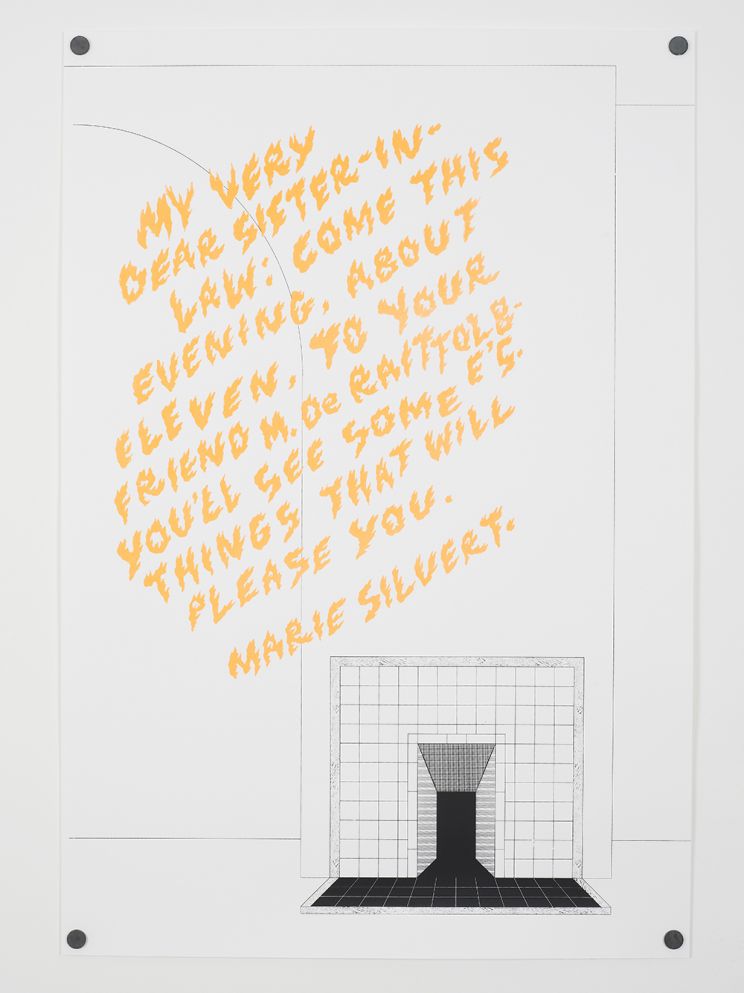 MY VERY
DEAR SISTER-IN-
LAW: COME THIS
EVENING, ABOUT
ELEVEN, TO YOUR
FRIEND M. De RAITTOLB-
E'S.
YOU'LL SEE SOME
THINGS THAT WILL
PLEASE YOU.
MARIE SILVERT.